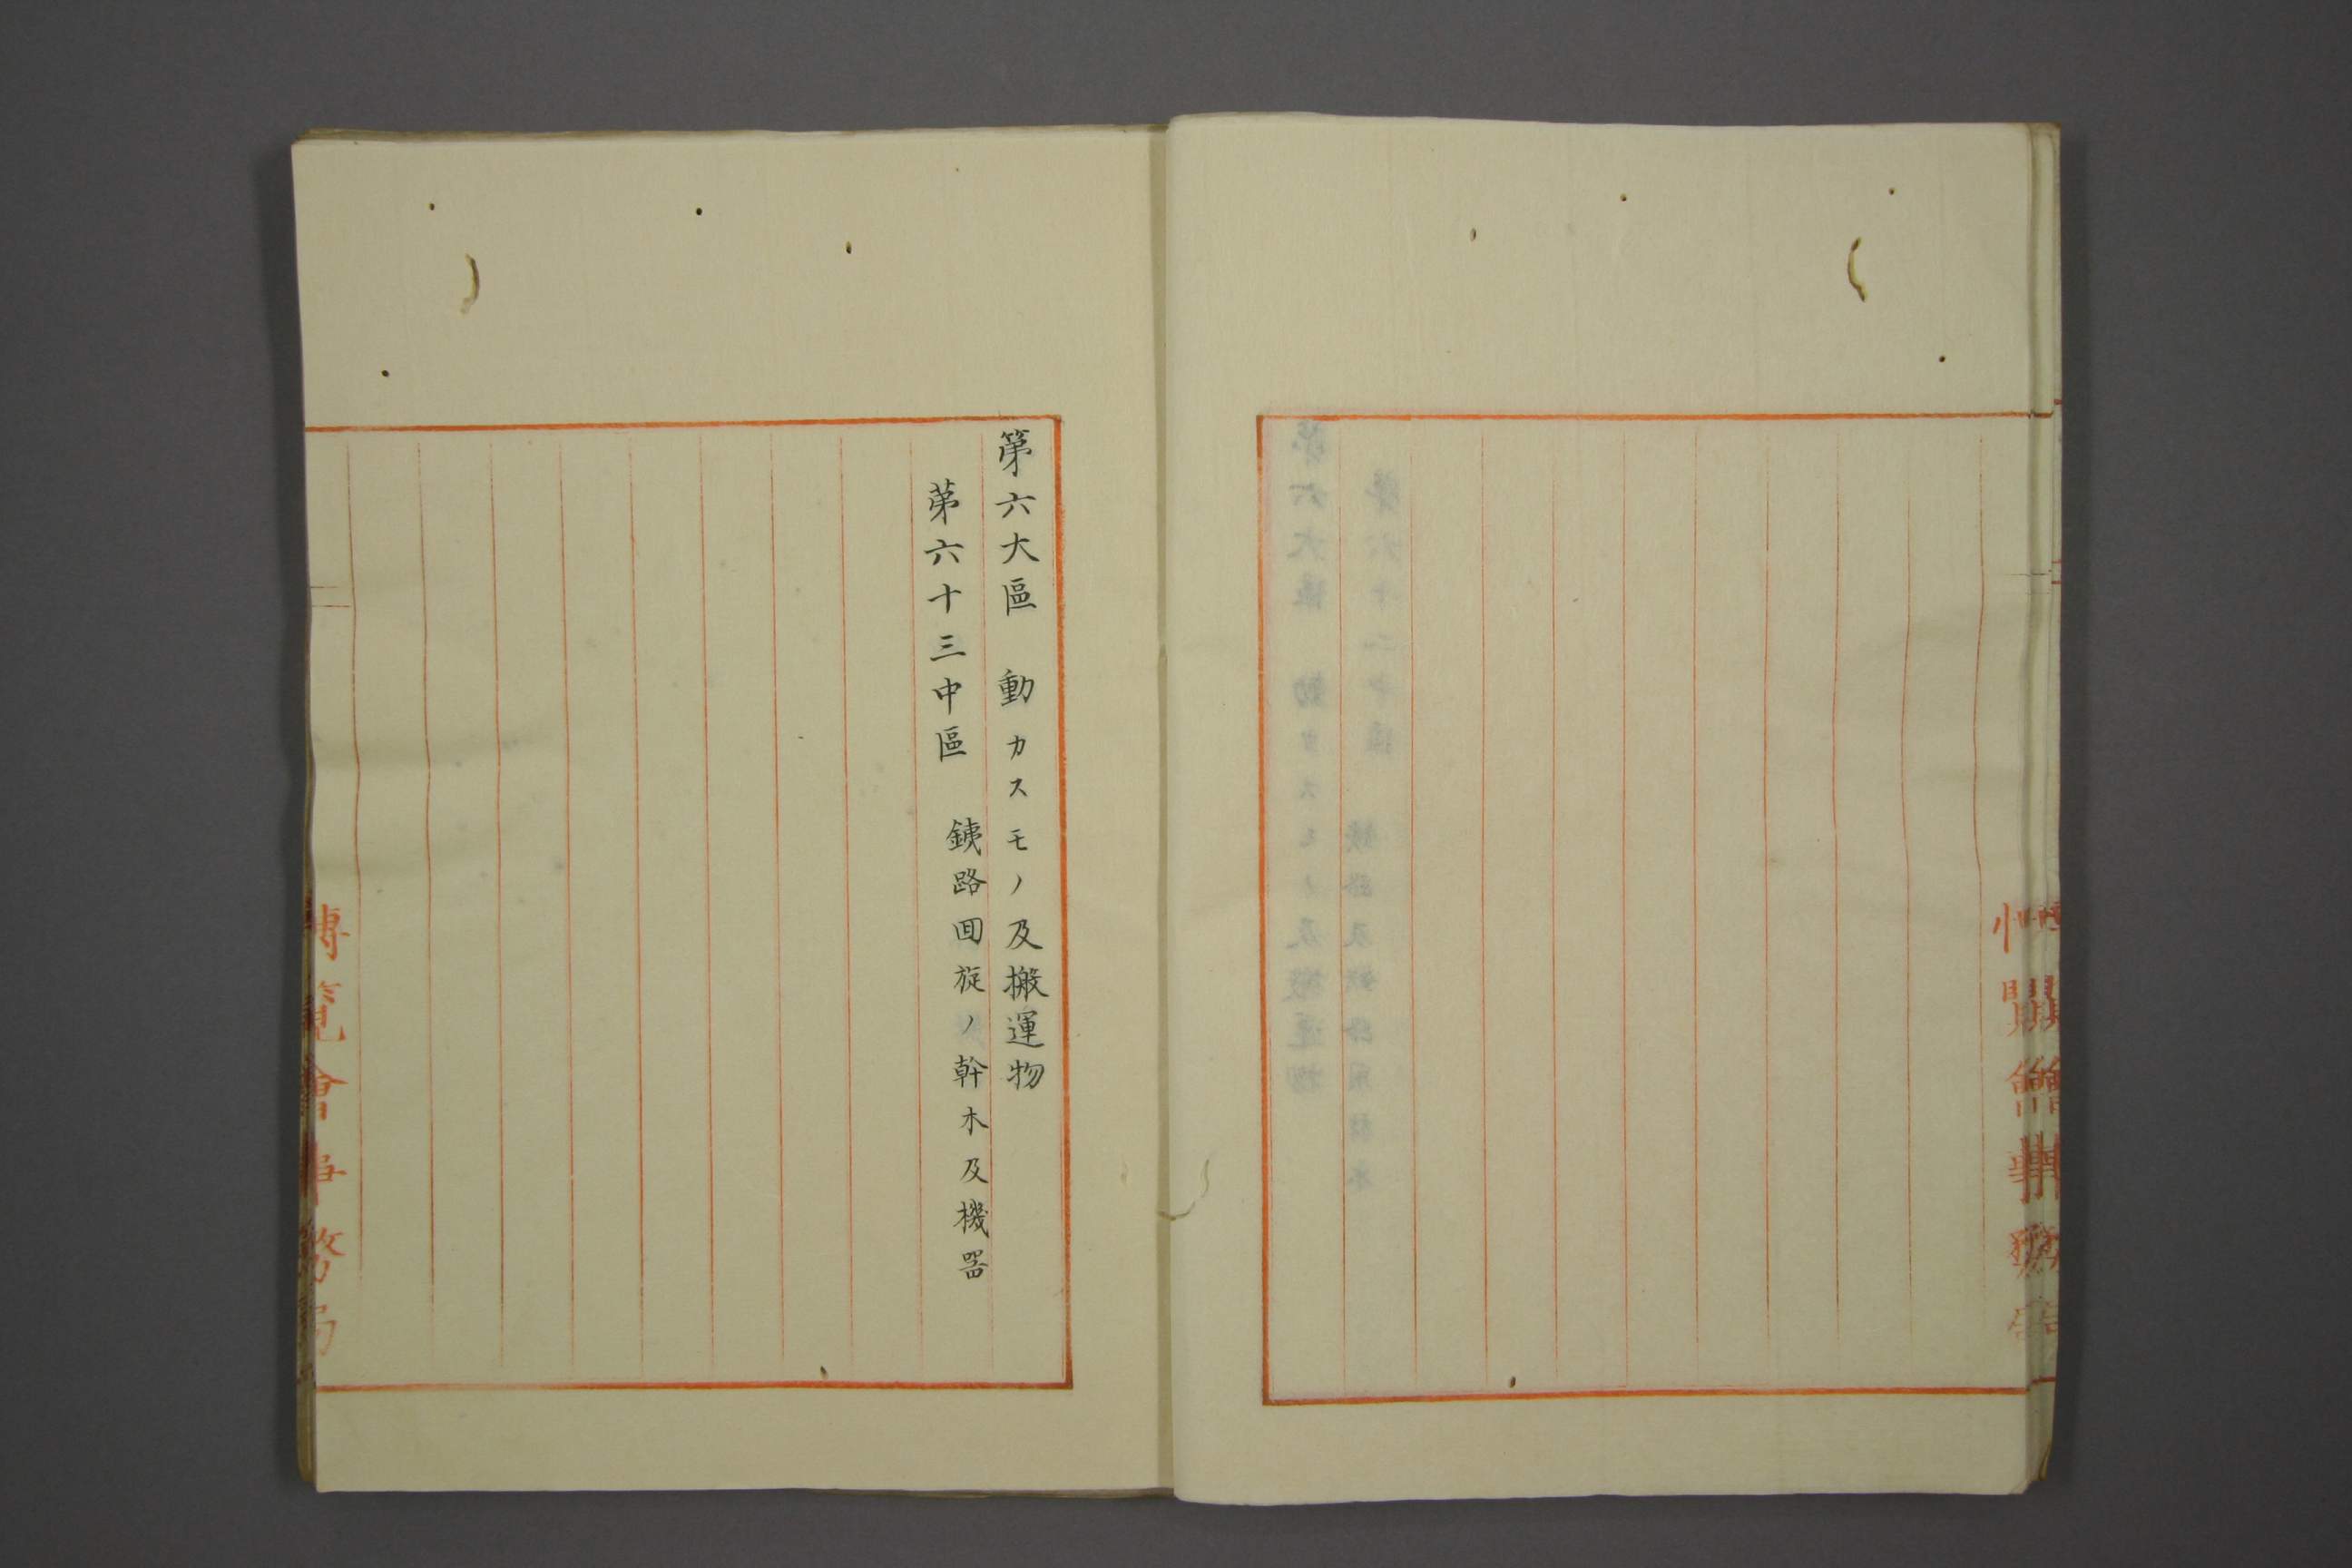 第六大區　動カスモノ及搬運物
第六十三中區　銕路囬旋ノ幹木及機器
博覽會事務局